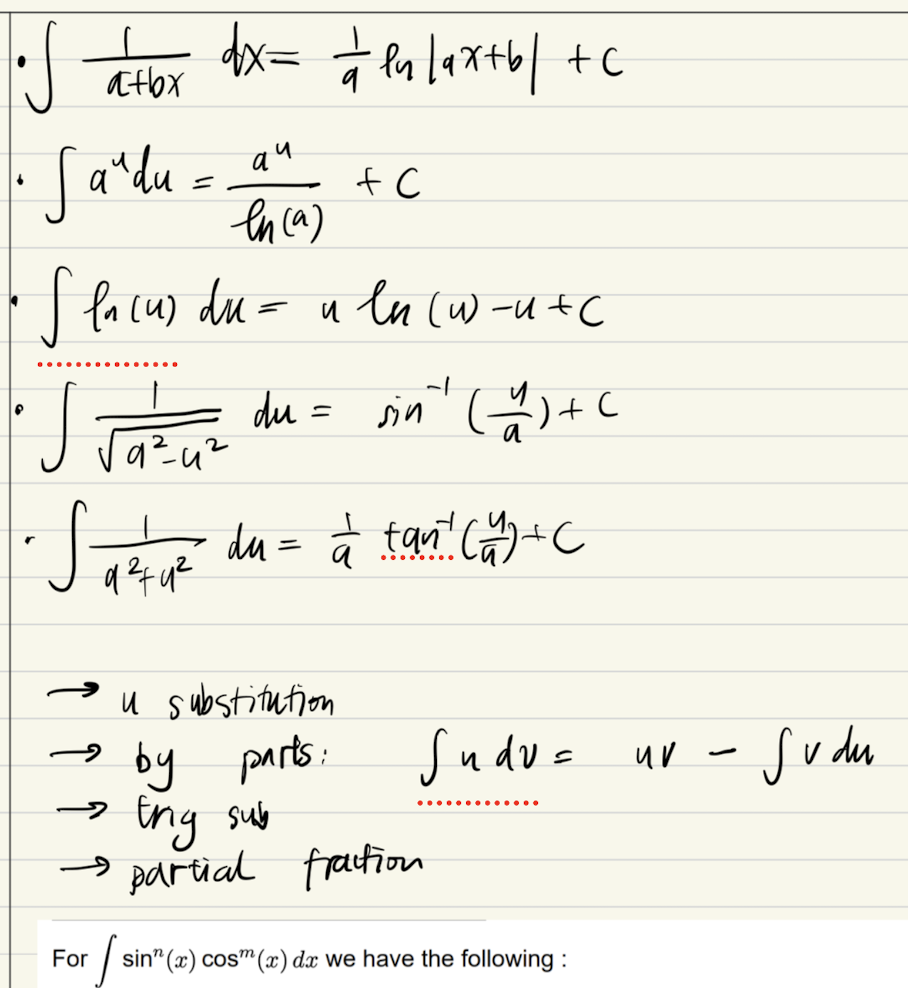 • ∫ 1/(a+bx) dx = 1/a ln |ax+b| + C
• ∫ a^u du = a^u/ln(a) + C
• ∫ ln(u) du = u ln(u) - u + C
• ∫ 1/√(a²-u²) du = sin⁻¹(u/a) + C
• ∫ 1/(a²+u²) du = 1/a tan⁻¹(u/a) + C
→ u substitution
→ by parts: ∫ u dv = uv - ∫ v du
→ trig sub
→ partial fraction
For ∫ sinⁿ(x) cosᵐ(x) dx we have the following :